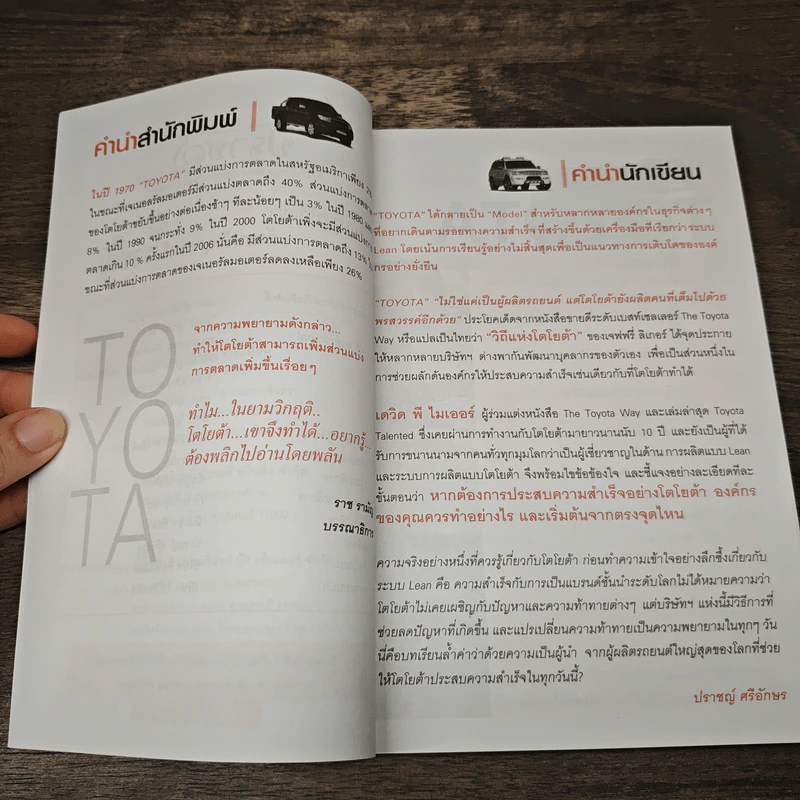 คำนำสำนักพิมพ์
ในปี 1970 "TOYOTA" มีส่วนแบ่งการตลาดในสหรัฐอเมริกาเพียง
ในขณะที่เจเนอลรัลมอเตอร์มีส่วนแบ่งตลาดถึง 40% ส่วนแบ่งการตลาด
ของโตโยต้าขยับขึ้นอย่างต่อเนื่องช้าๆ ทีละน้อยๆ เป็น 3% ในปี 1980
8% ในปี 1990 จนกระทั่ง 9% ในปี 2000 โตโยต้าเพิ่งจะมีส่วนแบ่งการ
ตลาดเกิน 10 % ครั้งแรกในปี 2006 นั่นคือ มีส่วนแบ่งการตลาดถึง 13%
ขณะที่ส่วนแบ่งการตลาดของเจเนอรัลมอเตอร์ลดลงเหลือเพียง 26%
TO
YO
TA
จากความพยายามดังกล่าว...
ทำให้โตโยต้าสามารถเพิ่มส่วนแบ่ง
การตลาดเพิ่มขึ้นเรื่อยๆ
ทำไม...ในยามวิกฤติ..
โตโยต้า...เขาจึงทำได้...อยากรู้...
ต้องพลิกไปอ่านโดยพลัน
ราช
บรรณาธิการ
คำนำนักเขียน
"TOYOTA" ได้กลายเป็น "Model" สำหรับหลากหลายองค์กรในธุรกิจต่างๆ
ที่อยากเดินตามรอยทางความสำเร็จ ที่สร้างขึ้นด้วยเครื่องมือที่เรียกว่า ระบบ
Lean โดยเน้นการเรียนรู้อย่างไม่สิ้นสุดเพื่อเป็นแนวทางการเติบโตขององค์
กรอย่างยั่งยืน
"TOYOTA" "ไม่ใช่แค่เป็นผู้ผลิตรถยนต์ แต่โตโยต้ายังผลิตคนที่เต็มไปด้วย
พรสวรรค์อีกด้วย" ประโยคเด็ดจากหนังสือขายดีระดับเบสท์เซลเลอร์ The Toyota
Way หรือแปลเป็นไทยว่า "วิถีแห่งโตโยต้า" ของเจฟฟรี่ ลิเกอร์ ได้จุดประกาย
ให้หลากหลายบริษัทฯ ต่างพากันพัฒนาบุคลากรของตัวเอง เพื่อเป็นส่วนหนึ่งใน
การช่วยผลักดันองค์กรให้ประสบความสำเร็จเช่นเดียวกับที่โตโยต้าทำได้
เดวิด พี ไมเออร์ ผู้ร่วมแต่งหนังสือ The Toyota Way และเล่มล่าสุด Toyota
Talented ซึ่งเคยผ่านการทำงานกับโตโยต้ามายาวนานนับ 10 ปี และยังเป็นผู้ที่ได้
รับการขนานนามจากคนทั่วทุกมุมโลกว่าเป็นผู้เชี่ยวชาญในด้าน การผลิตแบบ Lean
และระบบการผลิตแบบโตโยต้า จึงพร้อมไขข้อข้องใจ และชี้แจงอย่างละเอียดทีละ
ขั้นตอนว่า หากต้องการประสบความสำเร็จอย่างโตโยต้า องค์กร
ของคุณควรทำอย่างไร และเริ่มต้นจากตรงจุดไหน
ความจริงอย่างหนึ่งที่ควรรู้เกี่ยวกับโตโยต้า ก่อนทำความเข้าใจอย่างลึกซึ้งเกี่ยวกับ
ระบบ Lean คือ ความสำเร็จกับการเป็นแบรนด์ชั้นนำระดับโลกไม่ได้หมายความว่า
โตโยต้าไม่เคยเผชิญกับปัญหาและความท้าทายต่างๆ แต่บริษัทฯ แห่งนี้มีวิธีการที่
ช่วยลดปัญหาที่เกิดขึ้น และแปรเปลี่ยนความท้าทายเป็นความพยายามในทุกๆ วัน
นี่คือบทเรียนล้ำค่าว่าด้วยความเป็นผู้นำ จากผู้ผลิตรถยนต์ใหญ่สุดของโลกที่ช่วย
ให้โตโยต้าประสบความสำเร็จในทุกวันนี้?
ปราชญ์ ศรีอักษร